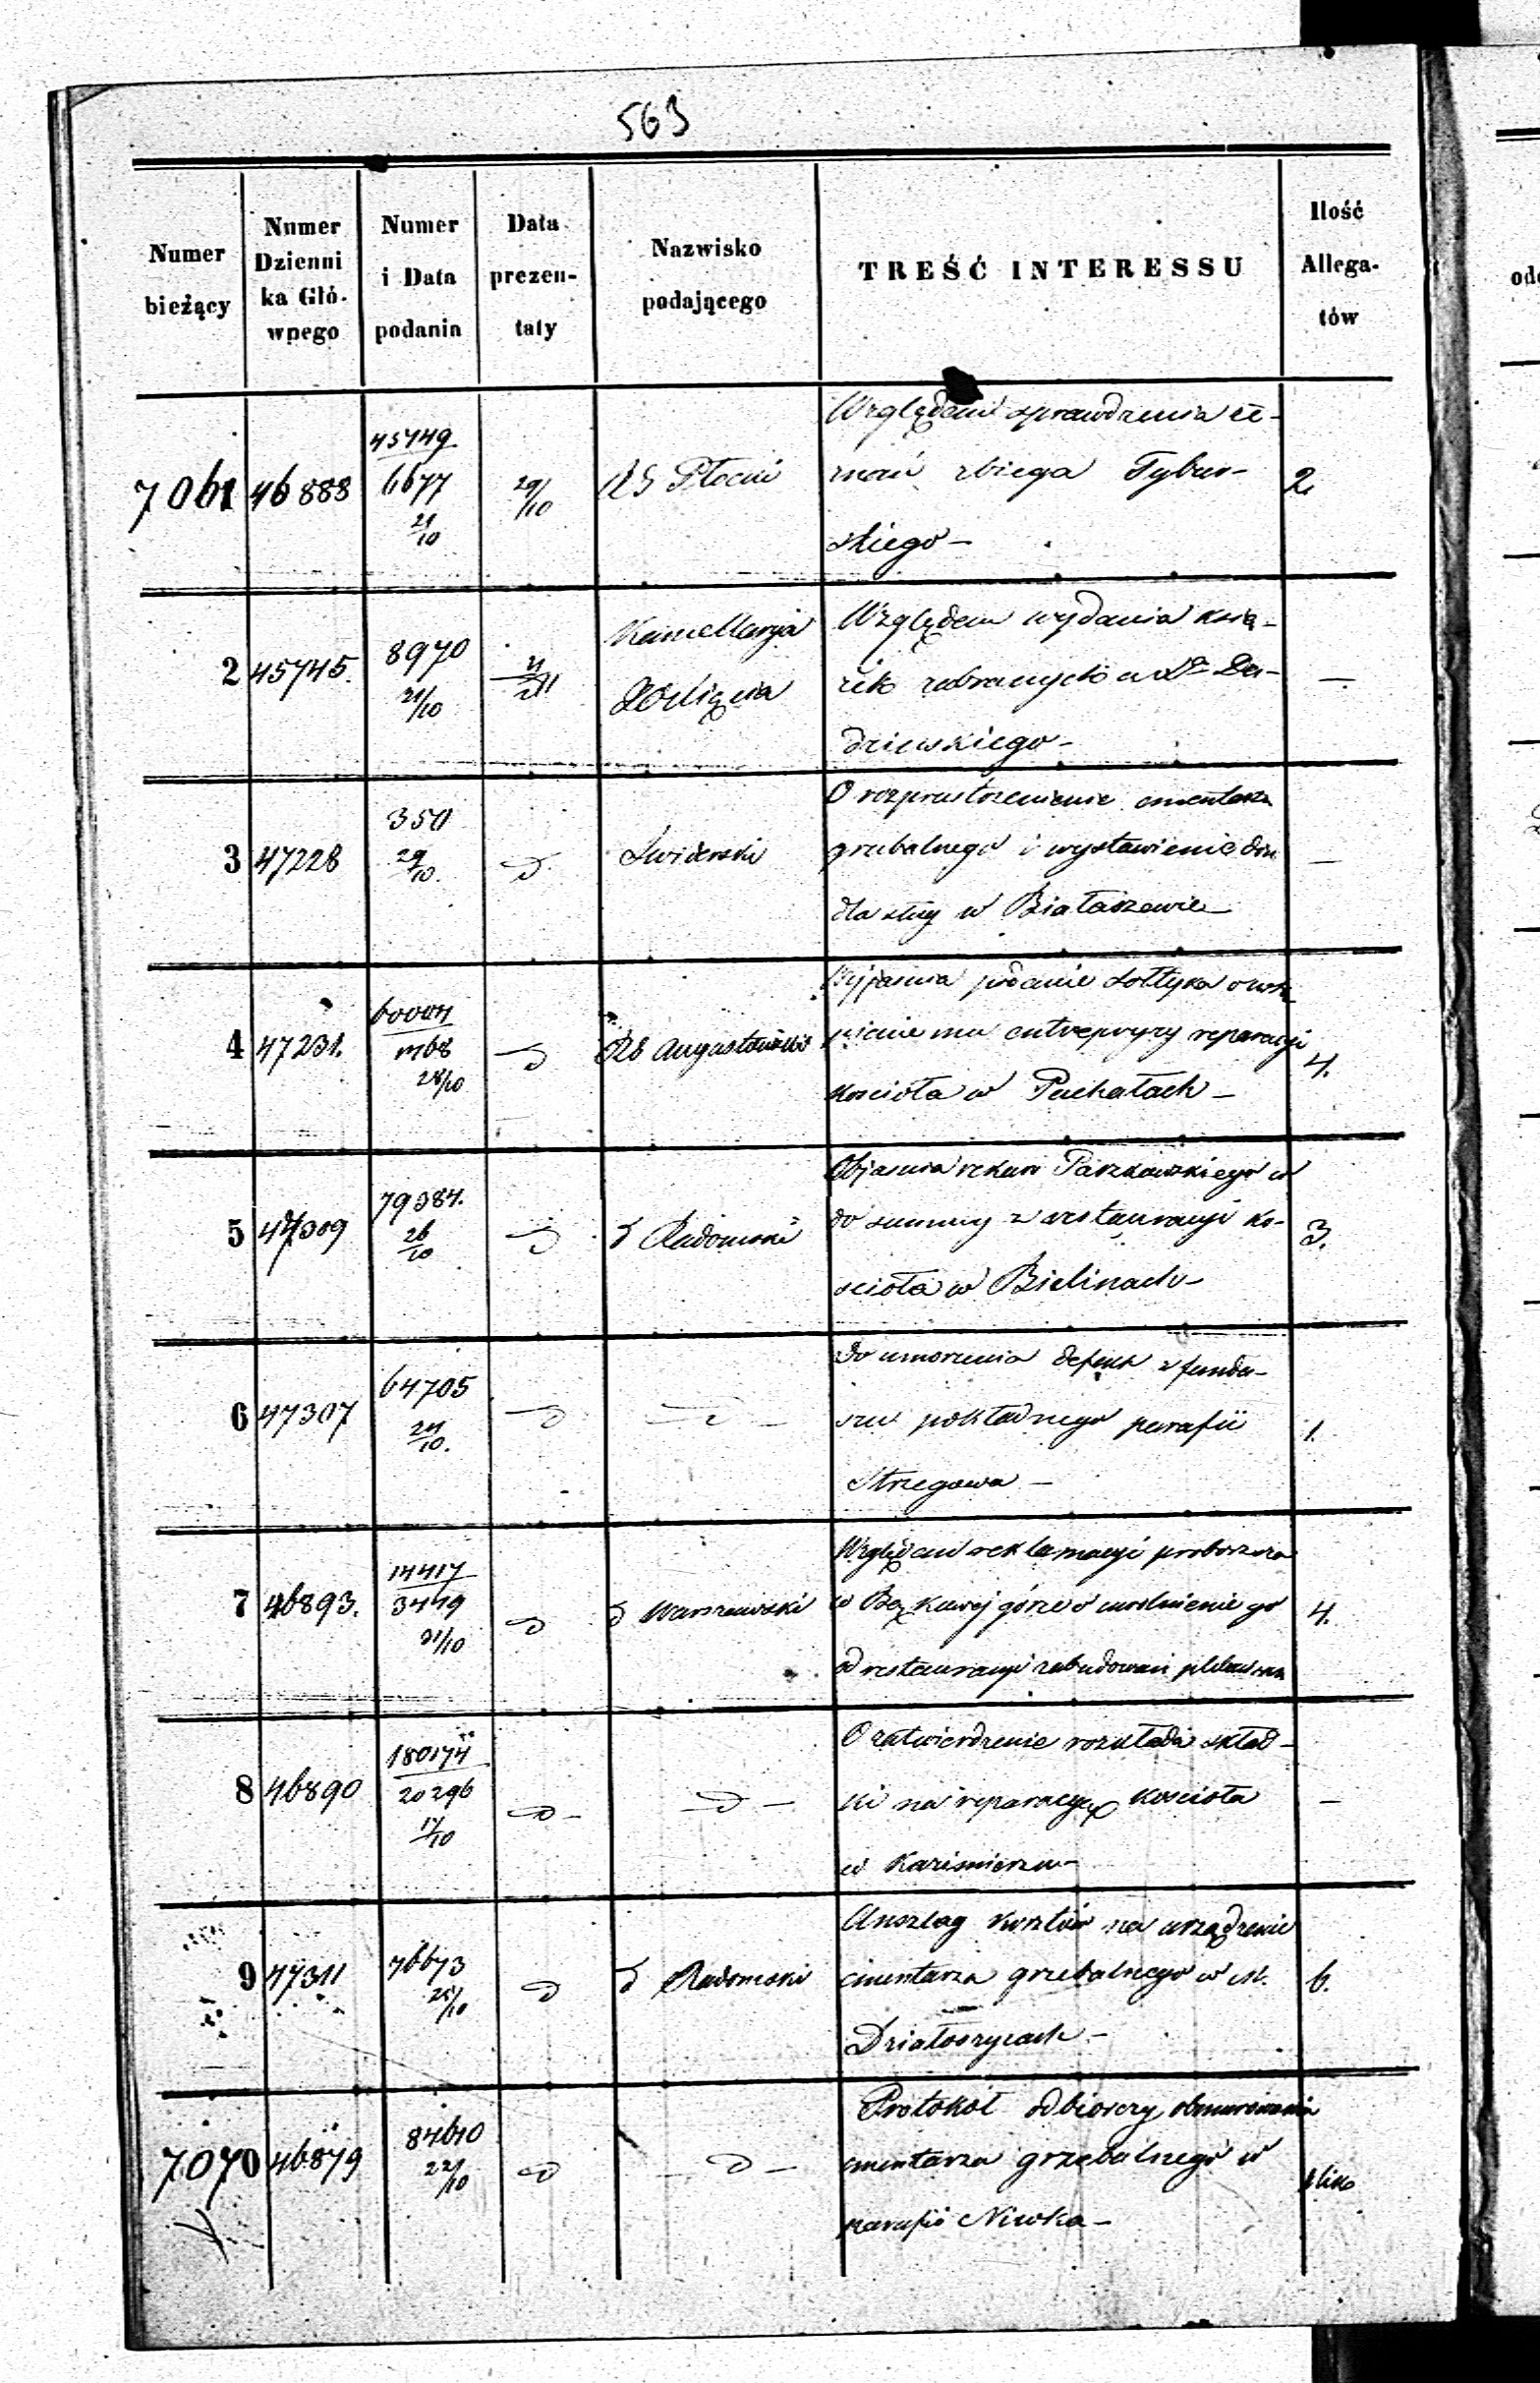 563
Numer bieżący
Numer Dzienni ka Głó- wnego
Numer i Data podania
Data prezen- taty
Nazwisko podającego
TREŚĆ INTERESSU
Ilość Allega- tów
7061 46888 45749 6677 21/10 29/10 RG Płocki
Względem sprawdzenia ze-
znań zbiega Tybur-
skiego –
2.
2 45745. 8970 21/10 Kancellarya
Względem wydania ksią-
żek zabranych u
dziewskiego –
—
3 47228 350 29/10. D Świderski
O rozprzestrzenienie cmentarza
grzebalnego i wystawienie dom
dla sług w Białaszewie –
—
4 47231. 60004 28/10 D RG Augustowski
Wyjaśnia podanie Sołtyka o
mu entrepryzy reparacyi
kościoła w Puchałach –
4.
5 47309 79384. 26/10 D d Radomski
Objaśnia rekurs Paszkowskiego w
do summy z restauracyi ko-
ścioła w Bielinach –
3.
6 47307 64705 24/10. D — D —
Do umorzenia defekt z fundu-
szu pokładnego parafii
Strzegowa –
1.
7 46893. 14417 3449 21/10 D d Warszawski
Względem reklamacyi proboszcza
w górze o uwolnienie go
od restauracyi zabudowań
4.
8 46890 180174 20296 17/10 D – — D —
O zatwierdzenie rozkładu skład-
ki na reparacyę kościoła
w Kazimierzu –
—
9 47311 76673 25/10 D d Radomski
Anszlag kosztów na urządzenie
cmentarza grzebalnego w M.
Działoszycach –
6.
7070 46879 84610 22/10 D — D —
Protokół odbiorczy obmurowania
cmentarza grzebalnego w
parafii Niwka –